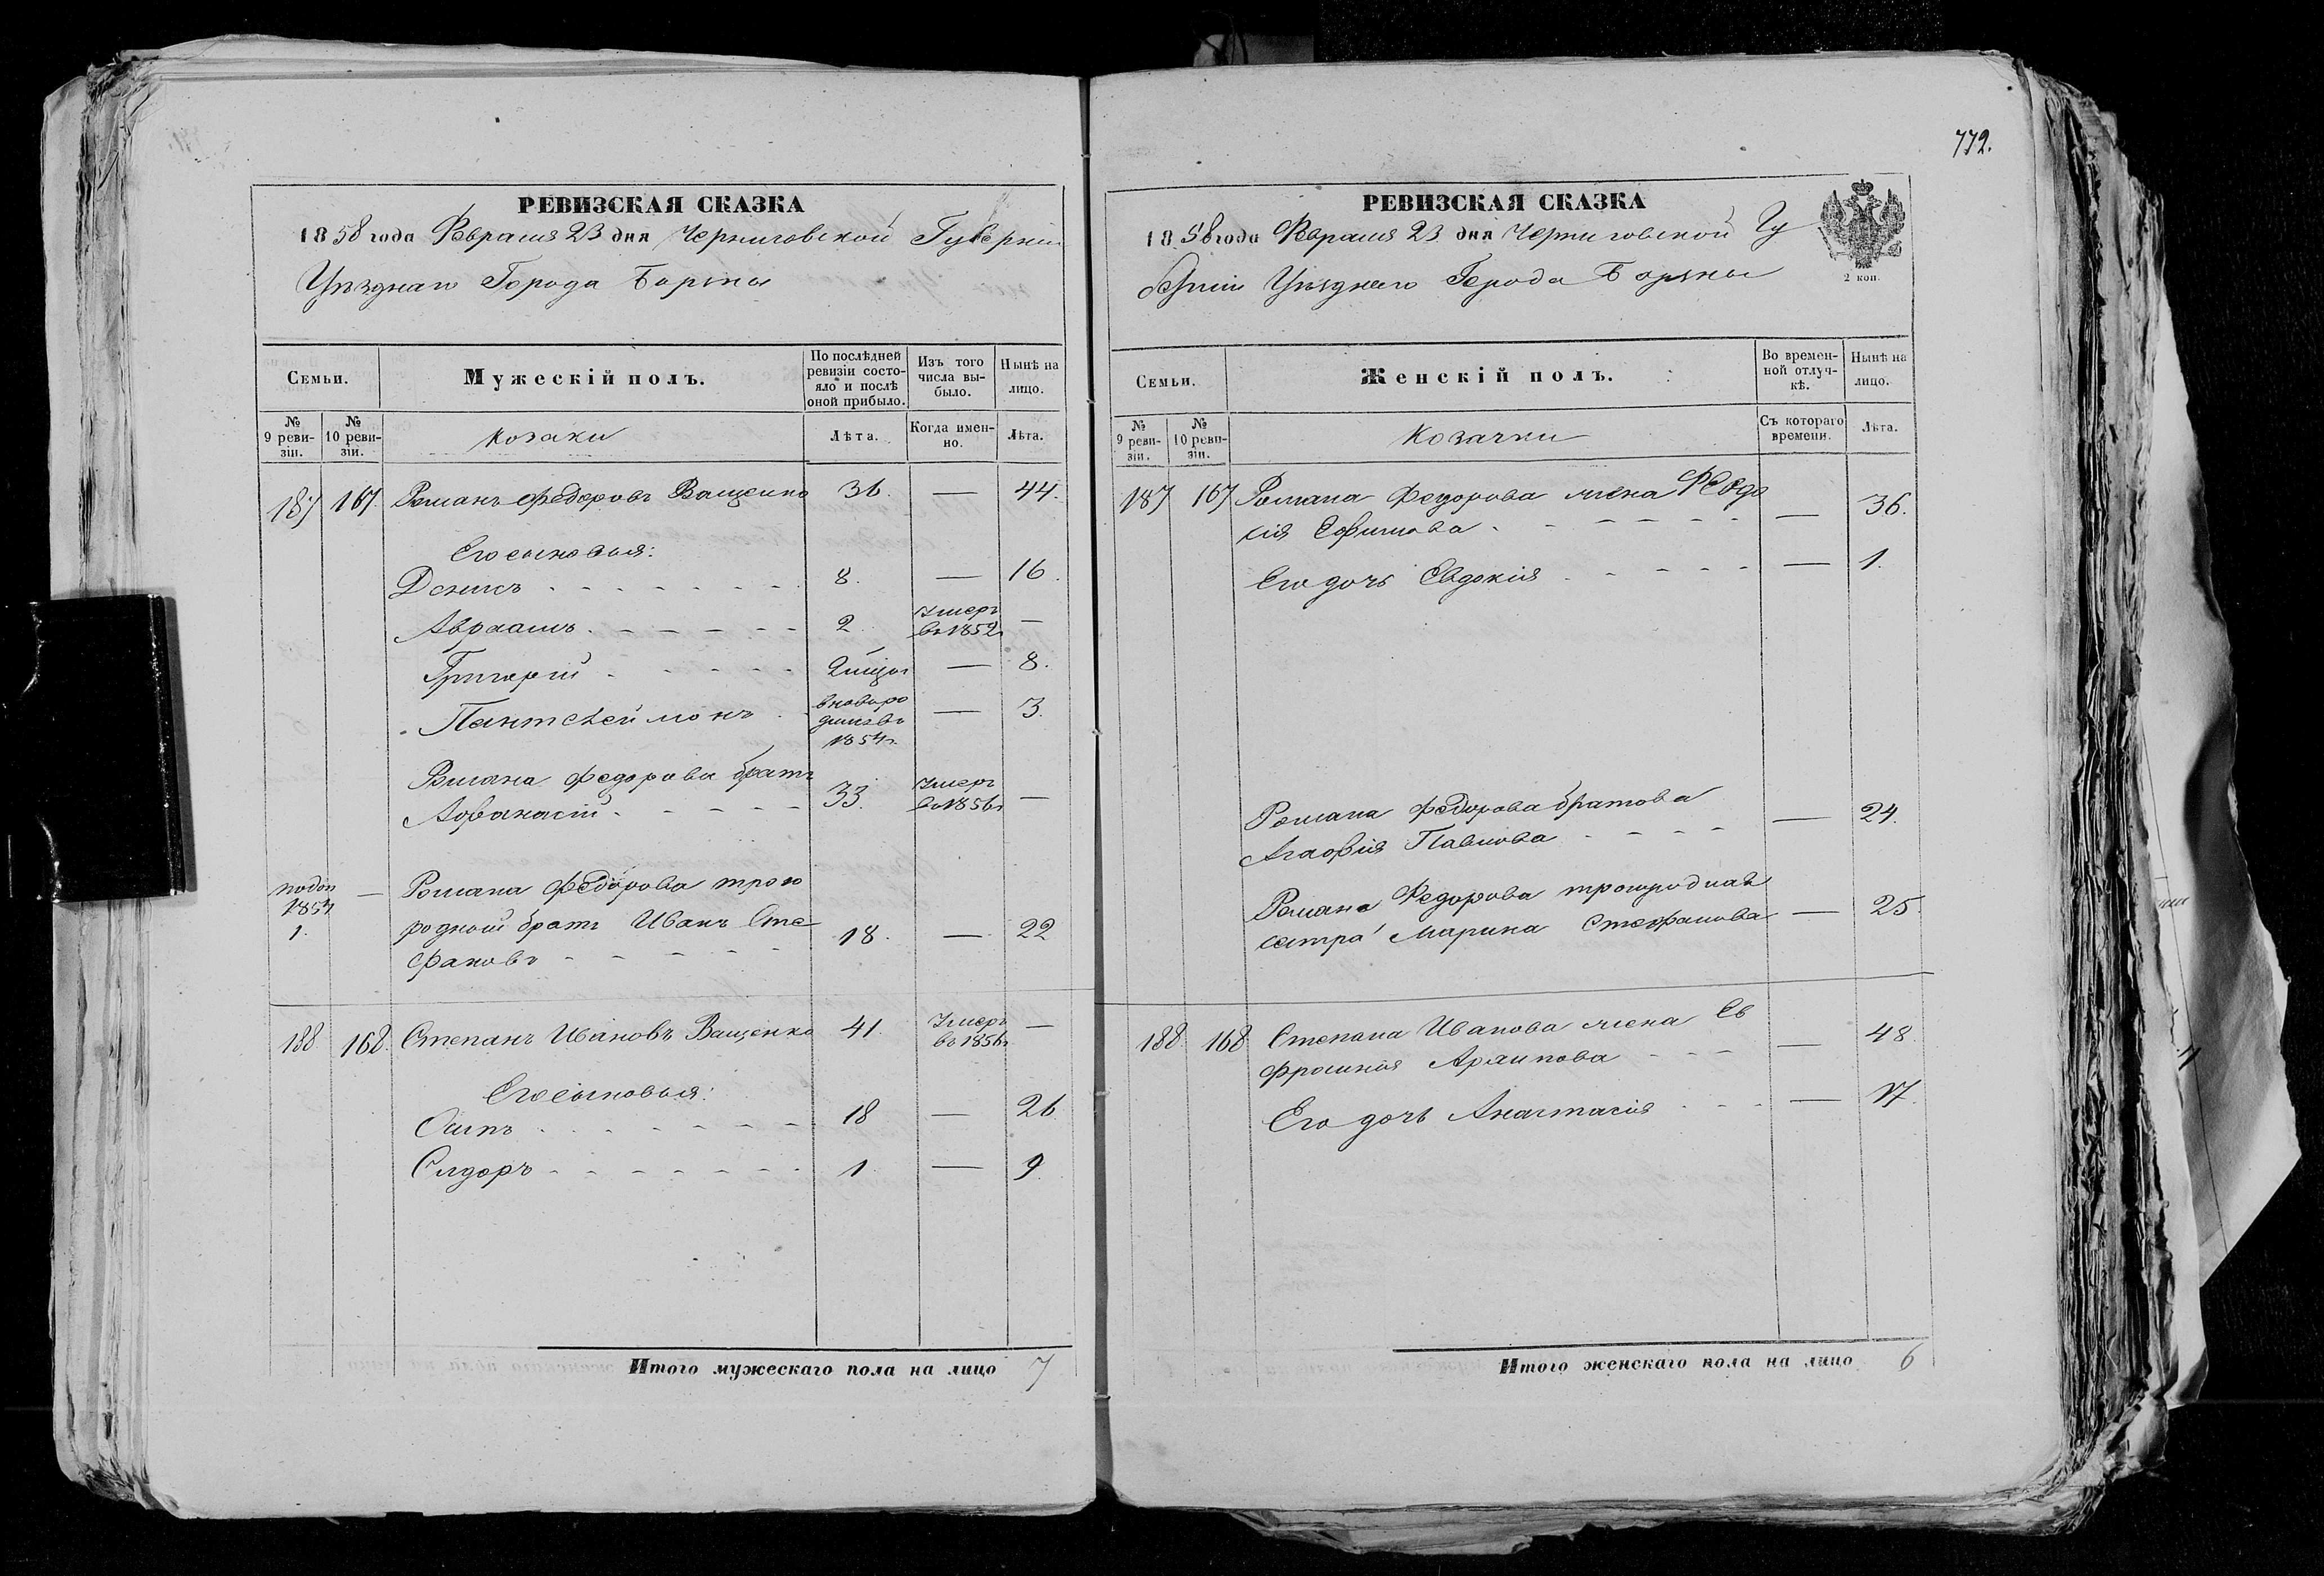 772.
РЕВИЗСКАЯ СКАЗКА
1858 года Февраля 23 дня Черниговской Губерніи
Уѣзднаго Города Борзны
Семьи.
Мужескій полъ.
По послѣдней ревизіи состояло и послѣ оной прибыло.
Изъ того числа выбыло.
Нынѣ на лицо.
№ 9 ревизіи.
№ 10 ревизіи.
Козаки
Лѣта.
Когда именно.
Лѣта.
187 167 Романъ Федоровъ Ващенко 36. — 44.
Его сыновья:
Денисъ 8. — 16.
Авраамъ 2. Умеръ въ 1852г —
Григорій — 8.
Пантелеймонъ вновь родился въ 1854г. — 3.
Романа Федорова братъ
Афанасій 33. Умеръ въ 1856г —
по доп 1854 1. — Романа Федорова трою
родной братъ Иванъ Сте
фановъ 18. — 22
188 168. Степанъ Ивановъ Ващенко 41. Умеръ въ 1856г —
Его сыновья:
Осипъ 18 — 26
Сидоръ 1. — 9.
Итого мужескаго пола на лицо 7
РЕВИЗСКАЯ СКАЗКА
1858 года Февраля 23 дня Черниговской Гу
берніи Уѣзднаго Города Борзны
2 коп.
Семьи.
Женскій полъ.
Во временной отлучкѣ.
Нынѣ на лицо.
№ 9 ревизіи.
№ 10 ревизіи.
Козачки
Съ котораго времени.
Лѣта.
187 167 Романа Федорова жена Феодо
сія Ефимова — 36.
Его дочь Евдокія — 1.
Романа Федорова братова
Агафія Павлова — 24.
Романа Федорова троюродная
сестра Марина Стефанова — 25
188. 168 Степана Иванова жена Ев
фросинія Архипова — 48.
Его дочь Анастасія — 17.
Итого женскаго пола на лицо 6